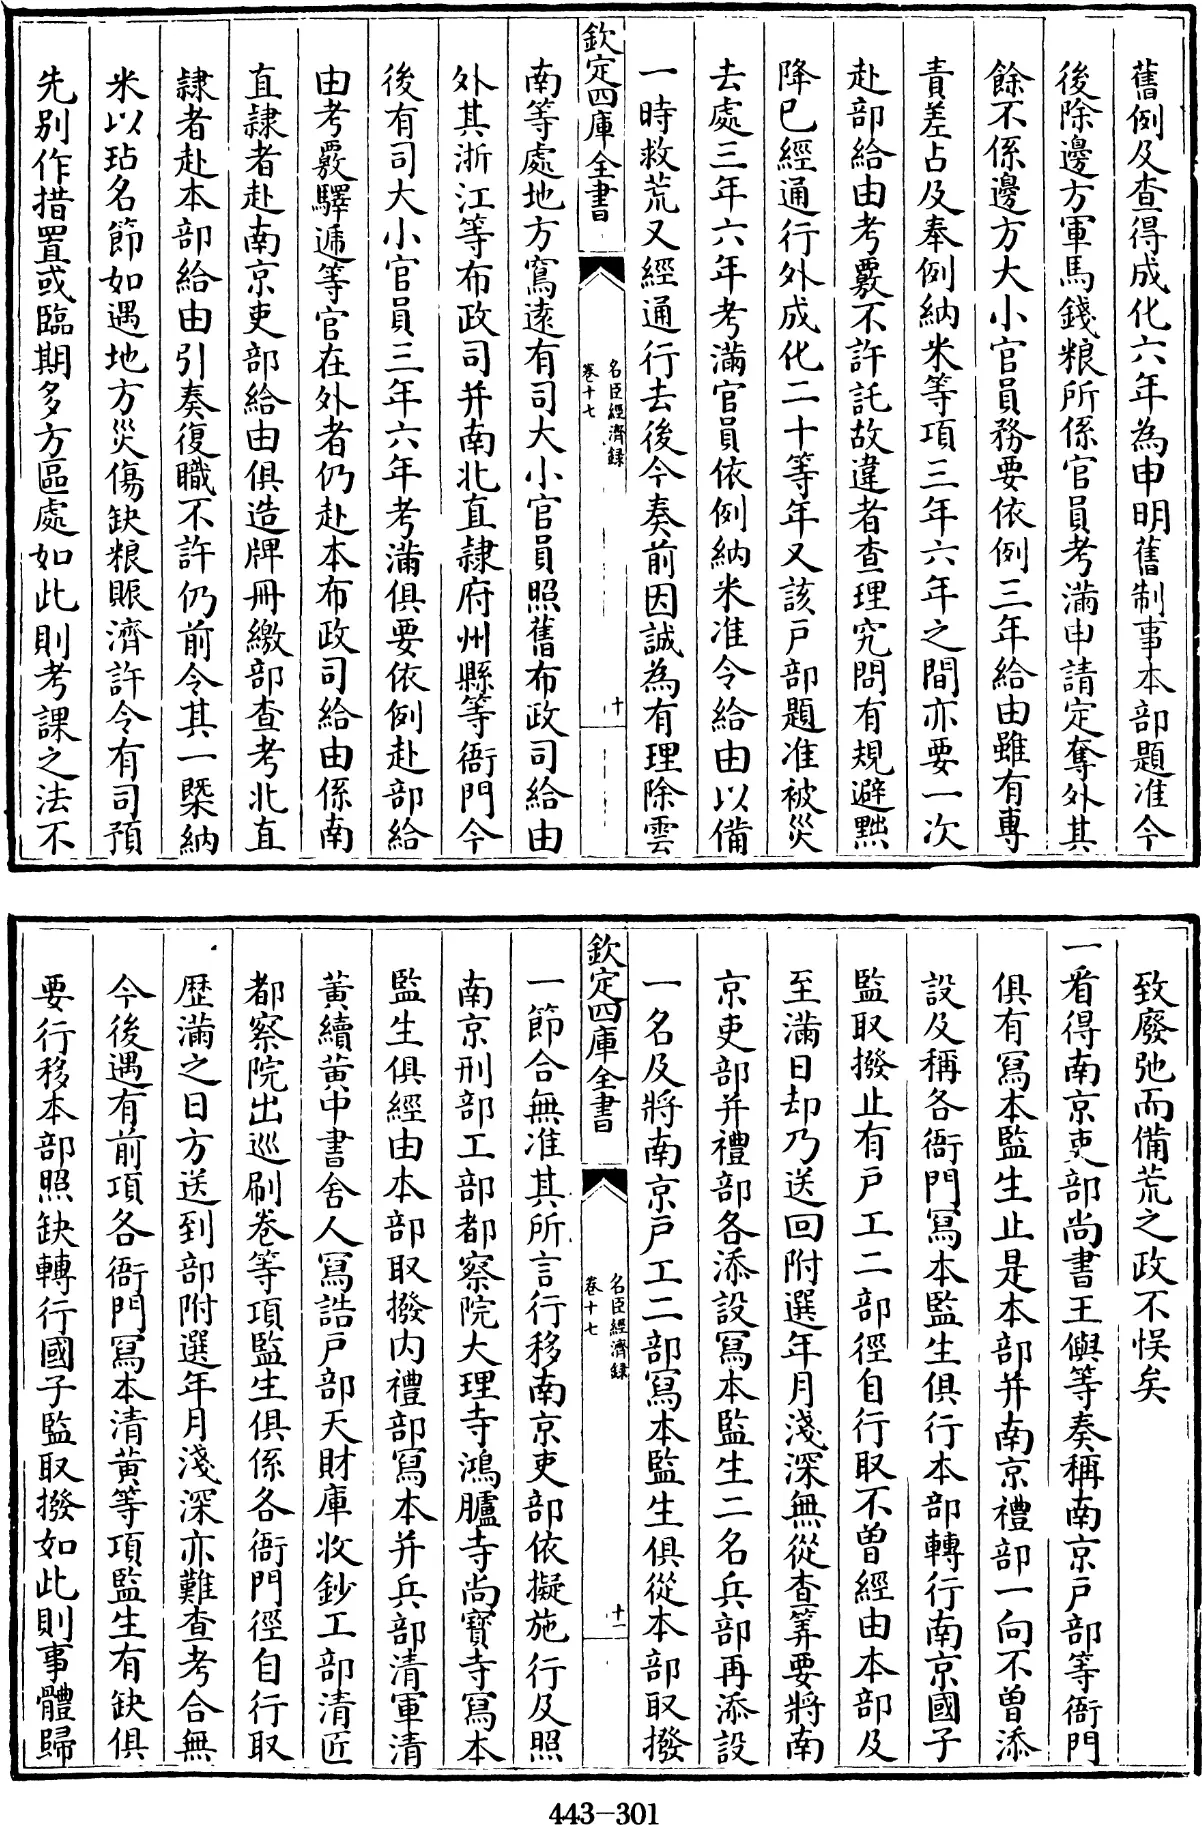 舊例及查得成化六年為申明舊制事本部題准今
後除邊方軍馬錢粮所係官員考滿申請定奪外其
餘不係邊方大小官員務要依例三年給由雖有專
責差占及奉例納米等項三年六年之間亦要一次
赴部給由考覈不許託故違者查理究問有規避黜
降已經通行外成化二十等年又該戶部題准被災
去處三年六年考滿官員依例納米准令給由以備
一時救荒又經通行去後今奏前因誠為有理除雲
欽定四庫全書
名臣經濟録
卷十七
十
南等處地方寫遠有司大小官員照舊布政司給由
外其浙江等布政司并南北直隷府州縣等衙門今
後有司大小官員三年六年考滿俱要依例赴部給
由考覈驛逓等官在外者仍赴本布政司給由係南
直隷者赴南京吏部給由俱造牌冊繳部查考北直
隷者赴本部給由引奏復職不許仍前令其一槩納
米以玷名節如遇地方災傷缺粮賑濟許令有司預
先别作措置或臨期多方區處如此則考課之法不
致廢弛而備荒之政不悮矣
一看得南京吏部尚書王㒜等奏稱南京戶部等衙門
俱有寫本監生止是本部并南京禮部一向不曽添
設及稱各衙門寫本監生俱行本部轉行南京國子
監取撥止有戶工二部徑自行取不曽經由本部及
至滿日却乃送回附選年月淺深無從查筭要將南
京吏部并禮部各添設寫本監生二名兵部再添設
一名及將南京戶工二部寫本監生俱從本部取撥
欽定四庫全書
名臣經濟録
卷十七
十一
一節合無准其所言行移南京吏部依擬施行及照
南京刑部工部都察院大理寺鴻臚寺尚寶寺寫本
監生俱經由本部取撥内禮部寫本并兵部清軍清
黄續黄中書舍人寫誥戶部天財庫收鈔工部清匠
都察院出巡刷卷等項監生俱係各衙門徑自行取
歴滿之日方送到部附選年月淺深亦難查考合無
今後遇有前項各衙門寫本清黄等項監生有缺俱
要行移本部照缺轉行國子監取撥如此則事體歸
443-301